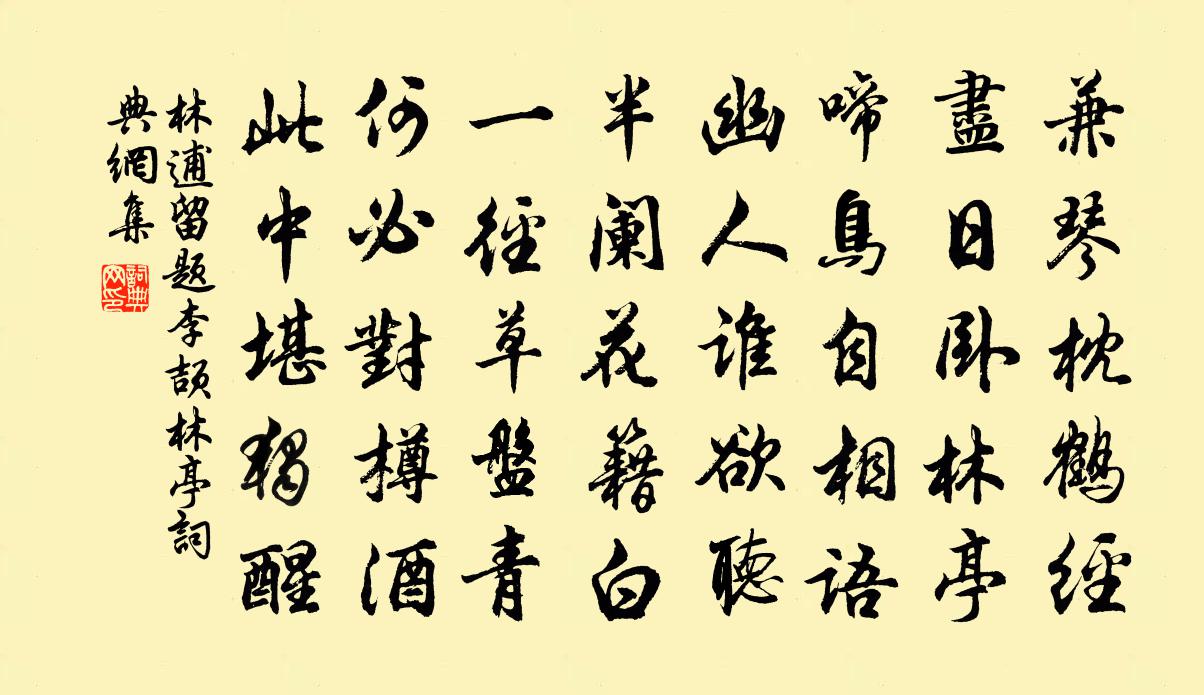 兼琴枕鶴經
盡日卧林亭
啼鳥自相語
幽人誰欲聽
半闌花籍白
一徑草盤青
何必對樽酒
此中堪獨醒
林逋留題李頡林亭詞
典網集
詞典
网印